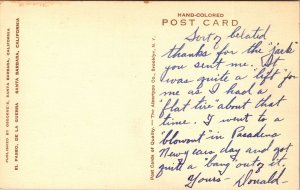 HAND-COLORED
POST CARD
PUBLISHED BY OSBORNE'S, SANTA BARBARA, CALIFORNIA
EL PASEO, DE LA GUERRA SANTA BARBARA, CALIFORNIA
Post Cards of Quality. — The Albertype Co., Brooklyn, N. Y.
Sort of belated
thanks for the "jack"
you sent me. It
was quite a "lift" for
me as I had a
"flat tire" about that
time. I went to a
"blowout" in Pasadena
New years day and got
quite a "bang out of it.
Yours - Donald -